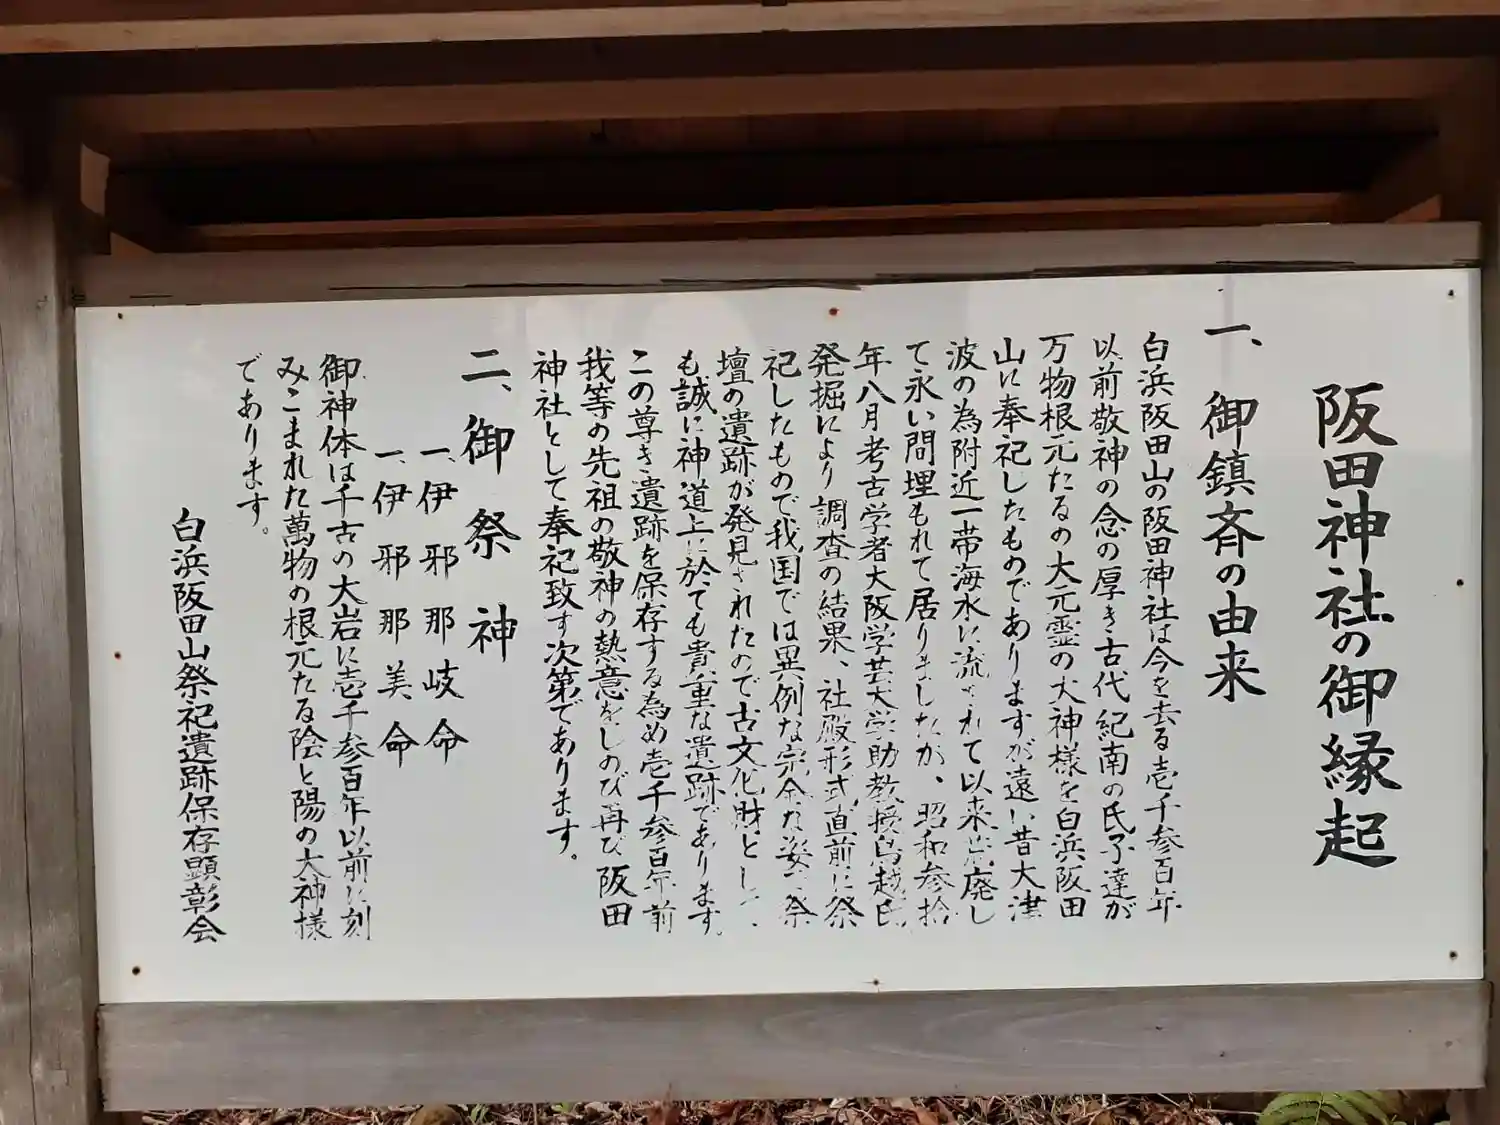 阪田神社の御縁起
一、御鎮斉の由来
白浜阪田山の阪田神社は今を去る壱千参百年
以前敬神の念の厚き古代紀南の氏子達が
万物根元たるの大元霊の大神様を白浜阪田
山に奉祀したものでありますが遠い昔大津
波の為附近一帯海水に流されて以来荒廃し
て永い間埋もれて居りましたが、昭和参拾
年八月考古学者大阪学芸大学助教授鳥越氏
発掘により調査の結果、社殿形式直前に祭
祀したもので我国では異例な完全な姿で祭
壇の遺跡が発見されたので古文化財として
も誠に神道上に於ても貴重な遺跡であります。
この尊き遺跡を保存する為め壱千参百年前
我等の先祖の敬神の熱意をしのび再び阪田
神社として奉祀致す次第であります。
二、御祭神
一、伊邪那岐命
一、伊邪那美命
御神体は千古の大岩に壱千参百年以前に刻
みこまれた萬物の根元たる陰と陽の大神様
であります。
白浜阪田山祭祀遺跡保存顕彰会